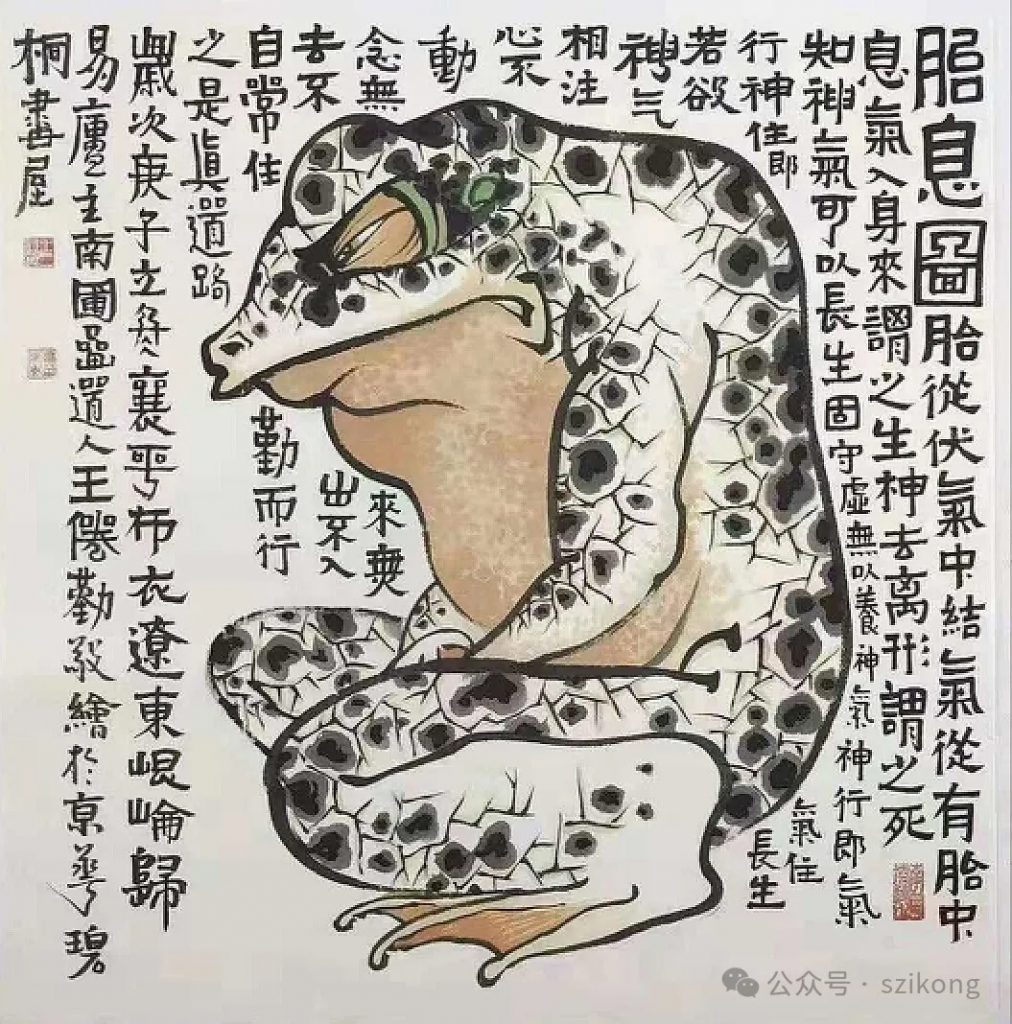 胎息圖胎從伏氣中結氣從有胎中
息氣入身來謂之生神去离形謂之死
知神氣可以長生固守虛無以養神氣神行即氣
行神住即氣住
若欲長生
神气
相注
心不
動
念無來無
去不出不入
自常住勤而行
之是真道路
歲次庚子立冬襄平布衣遼東崐崘歸
易廬主南圃道人王勤敬繪於京華碧
桐書屋
公众号 · szikong